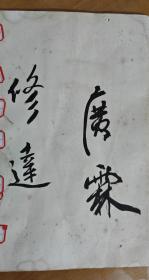 廣霖
修達